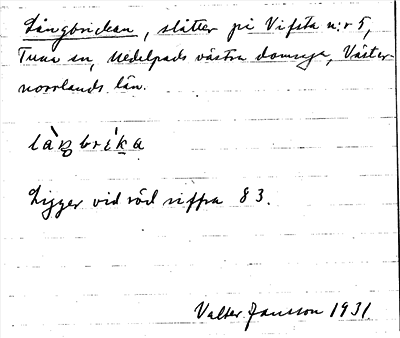 Långbrickan, slåtter på Vifsta n:r 5,
Tuna sn, Medelpads västra domsaga, Väster-
norrlands län.
làŋbrika
Ligger vid röd siffra 83.
Valter Jansson 1931